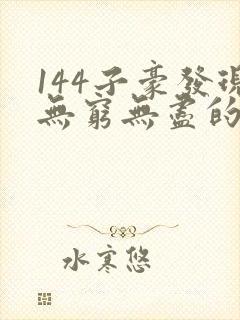 144子豪發現
無窮無盡的
水寒悠